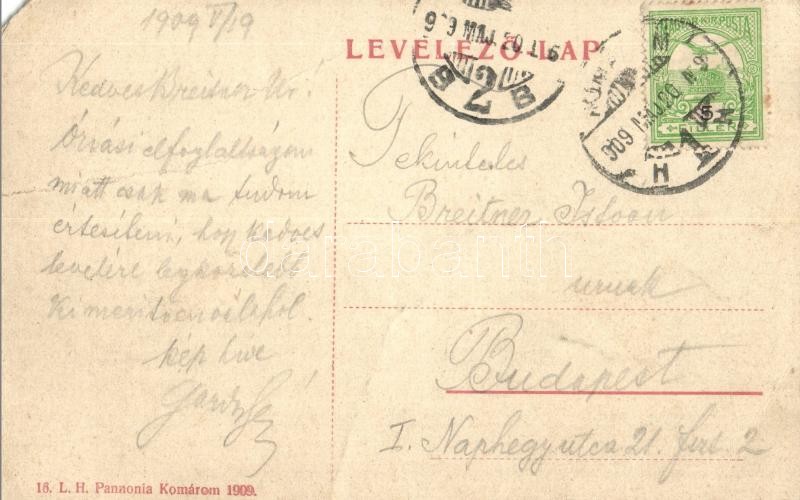 1909 V/19
LEVELEZŐ-LAP
Kedves Breitner Úr!
Óriási elfoglaltságom
miatt csak ma tudom
értesíteni, hogy kedves
levelére legközelebb
kimerítően válaszol.
kép híve
Tekintetes
Breitner István
urnak
Budapest
I. Naphegy utca 21. fsz. 2
16. L. H. Pannonia Komárom 1909.
darabanth